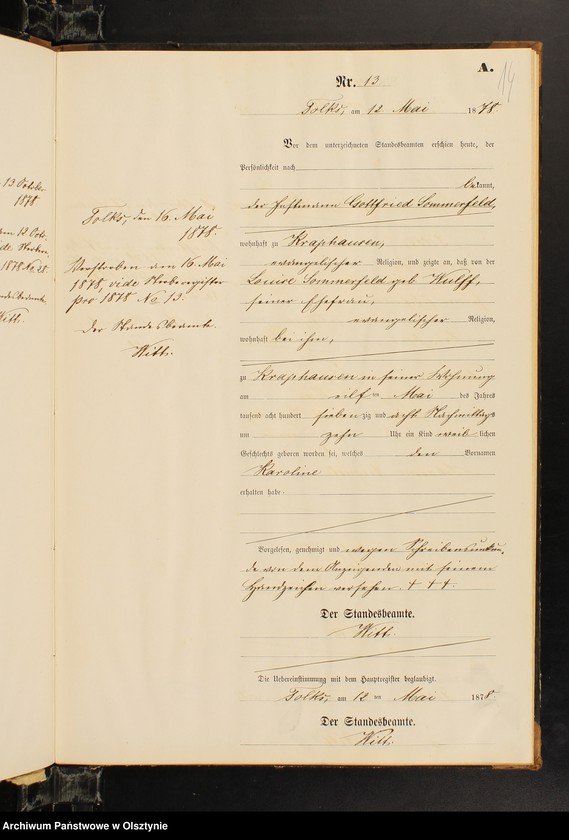 A.
14
Nr. 13
Tolks, am 12. Mai 1878.
Vor dem unterzeichneten Standesbeamten erschien heute, der
Persönlichkeit nach
bekannt,
der Instmann Gottfried Sommerfeld,
wohnhaft zu Kraphausen,
evangelischer Religion, und zeigte an, daß von der
Louise Sommerfeld geb Wulff,
seiner Ehefrau,
evangelischer Religion,
wohnhaft bei ihm,
zu Kraphausen in seiner Wohnung
am eilf ten Mai des Jahres
tausend acht hundert siebenzig und acht Nachmittags
um zehn Uhr ein Kind weiblichen
Geschlechts geboren worden sei, welches den Vornamen
Karoline
erhalten habe.
Vorgelesen, genehmigt und wegen Schreibensunkun-
de von dem Anzeigenden mit seinem
Handzeichen versehen. + + +.
Der Standesbeamte.
Witt.
Die Uebereinstimmung mit dem Hauptregister beglaubigt.
Tolks, am 12 ten Mai 1878.
Der Standesbeamte.
Witt.
Tolks, den 16. Mai
1878.
Verstorben am 16. Mai
1878, vide Sterberegister
pro 1878 No 13.
Der Standesbeamte.
Witt.
13 October
1878
1878 No 28
Witt.
Archiwum Państwowe w Olsztynie